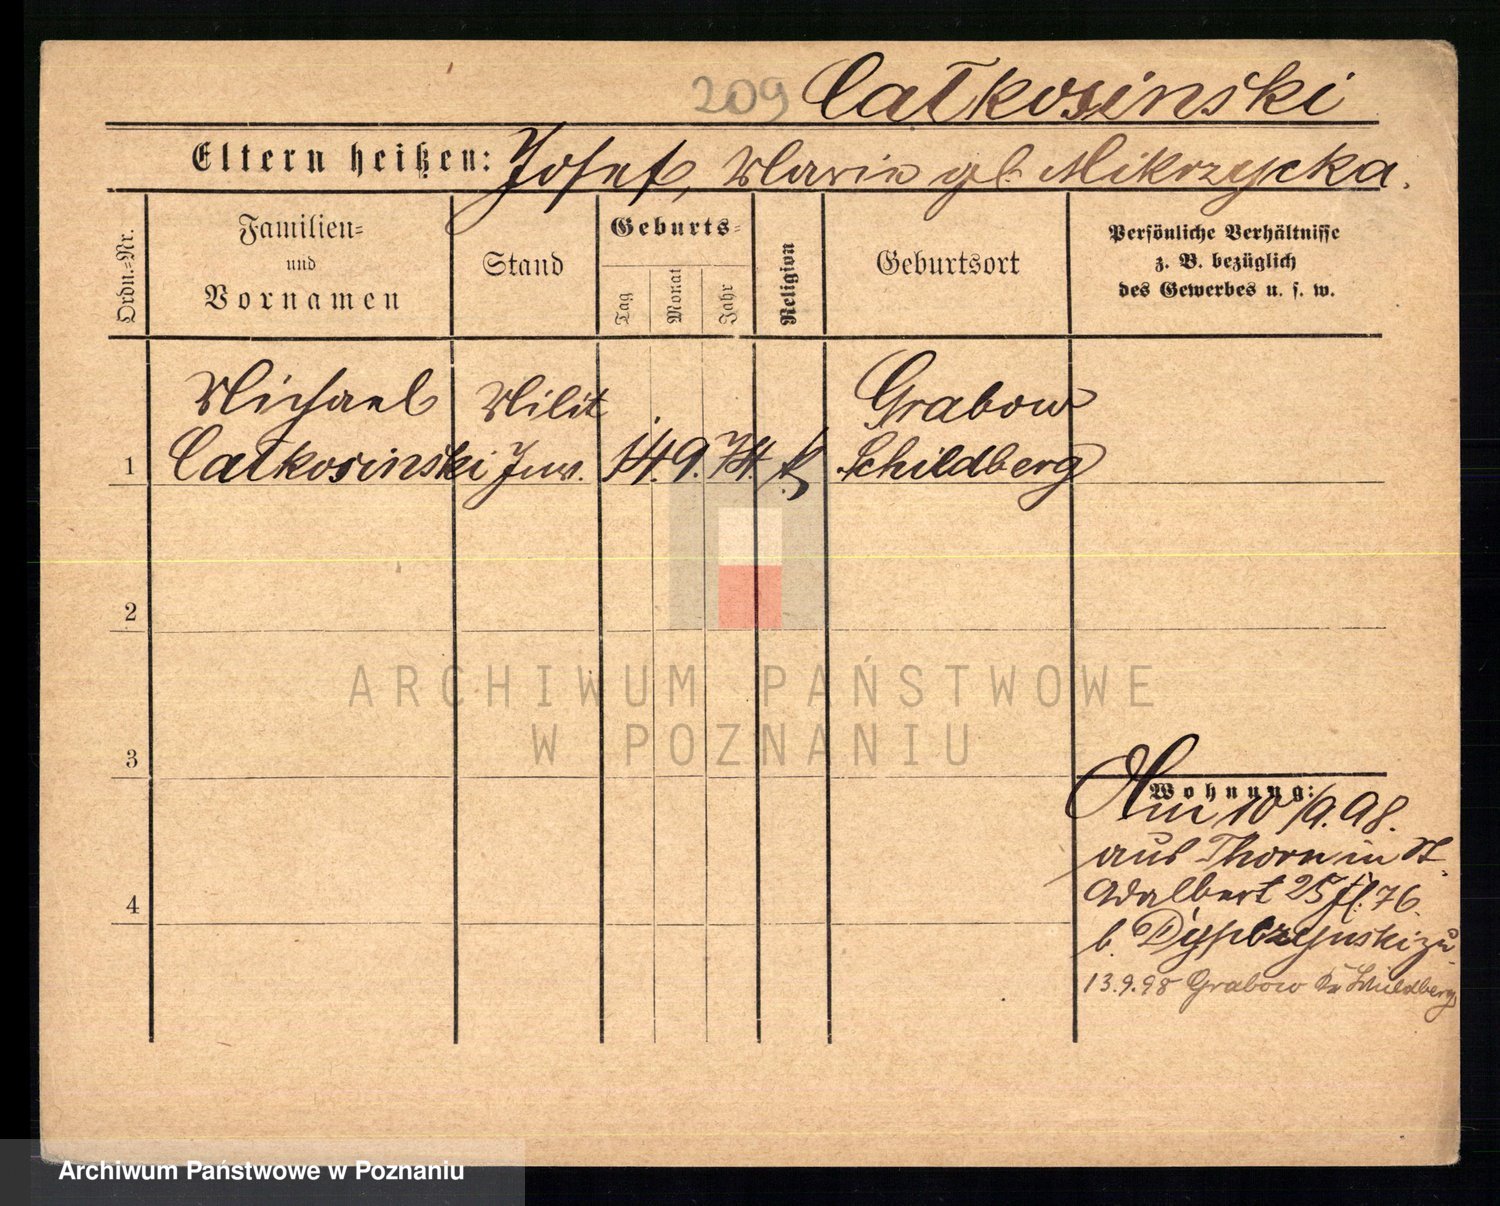 209 Całkosinski
Eltern heißen: Josef, Marie gb Mikrzycka.
Ordn.-Nr.
Familien-
und
Vornamen
Stand
Geburts-
Tag
Monat
Jahr
Religion
Geburtsort
Persönliche Verhältnisse
z. B. bezüglich
des Gewerbes u. s. w.
Michael Milit Grabow
1 Całkosinski Inv. 14. 9. 74. k Schildberg
2
ARCHIWUM PAŃSTWOWE
W POZNANIU
3
Wohnung:
Am 10/9.98.
aus Thorn in St.
Adalbert 25 76.
b. zu
13.9.98 Grabow Kr Schildberg
4
Archiwum Państwowe w Poznaniu